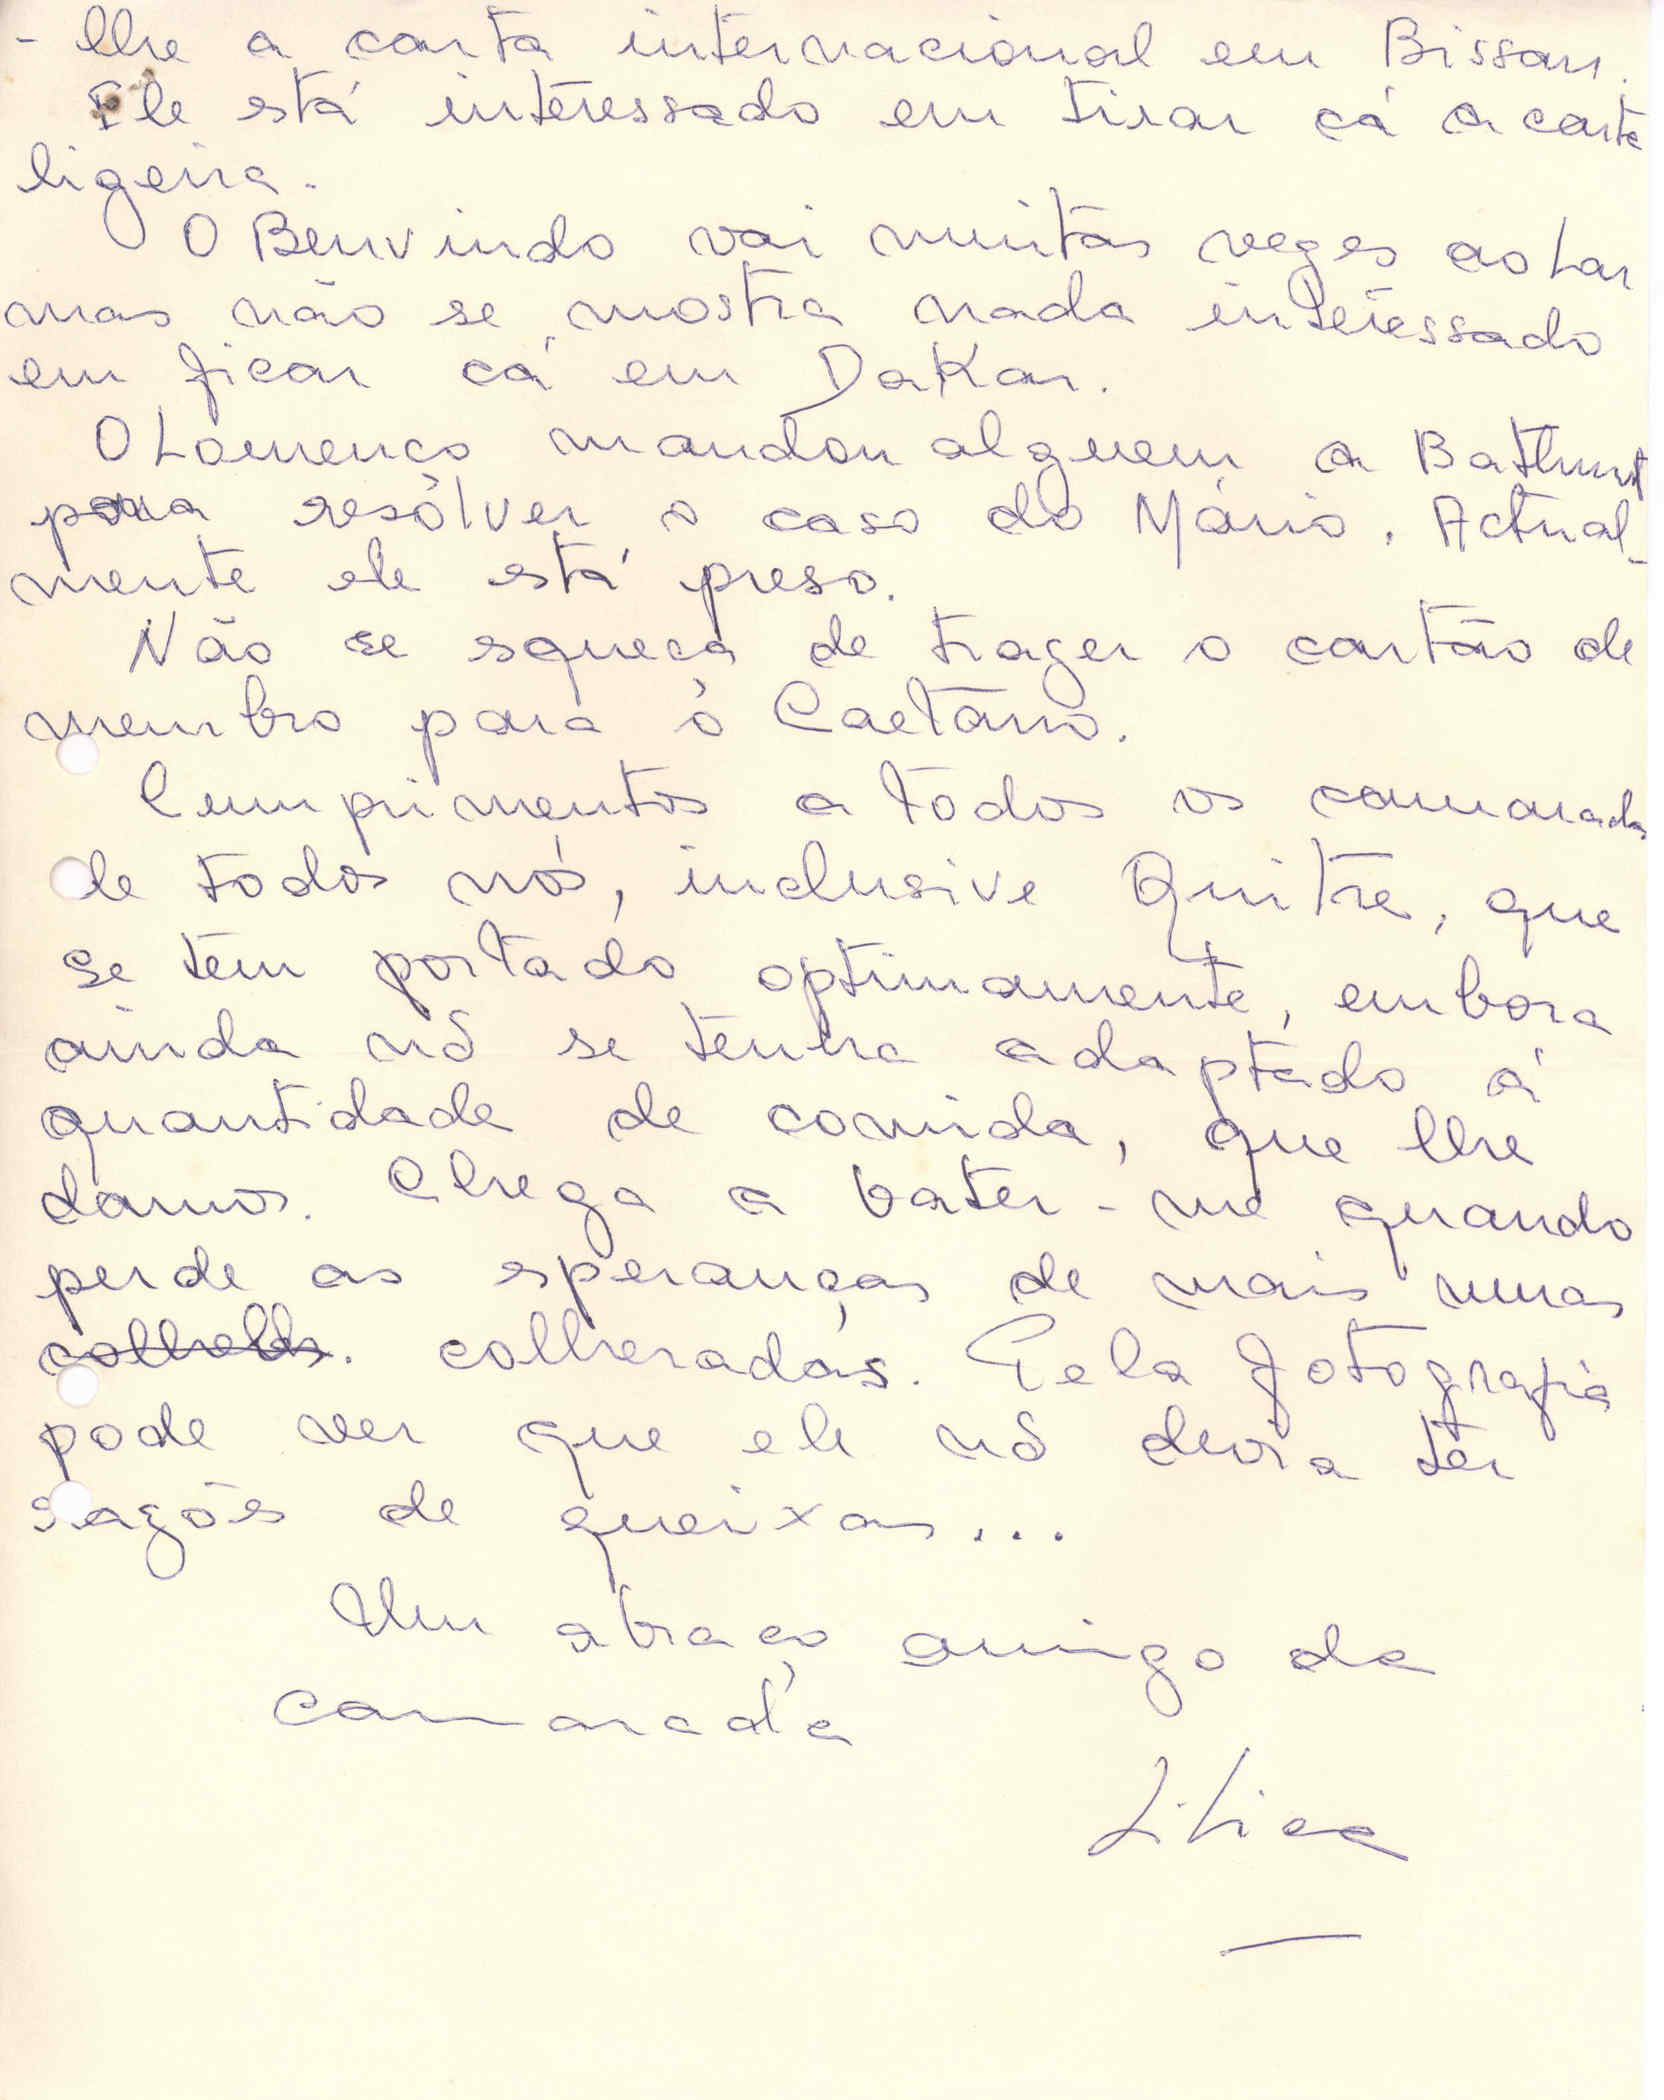 - lhe a carta internacional em Bissau.
Ele está interessado em tirar cá a carta
ligeira.
O Benvindo vai muitas vezes ao Lar
mas não se mostra nada interessado
em ficar cá em Dakar.
O Lourenço mandou alguem a Bathurst
para resolver o caso do Mário. Actual-
mente ele está preso.
Não se esqueça de trazer o cartão de
membro para o Caetano.
Cumprimentos a todos os camaradas
de todos nós, inclusive Quitre, que
se tem portado optimamente, embora
ainda nõ se tenha adaptado á
quantidade de comida, que lhe
damos. Chega a bater-me quando
perde as esperanças de mais umas
colheradas. Pela fotografia
pode ver que ele nõ devia ter
razões de queixas...
Um abraço amigo da
camarada
Lilica